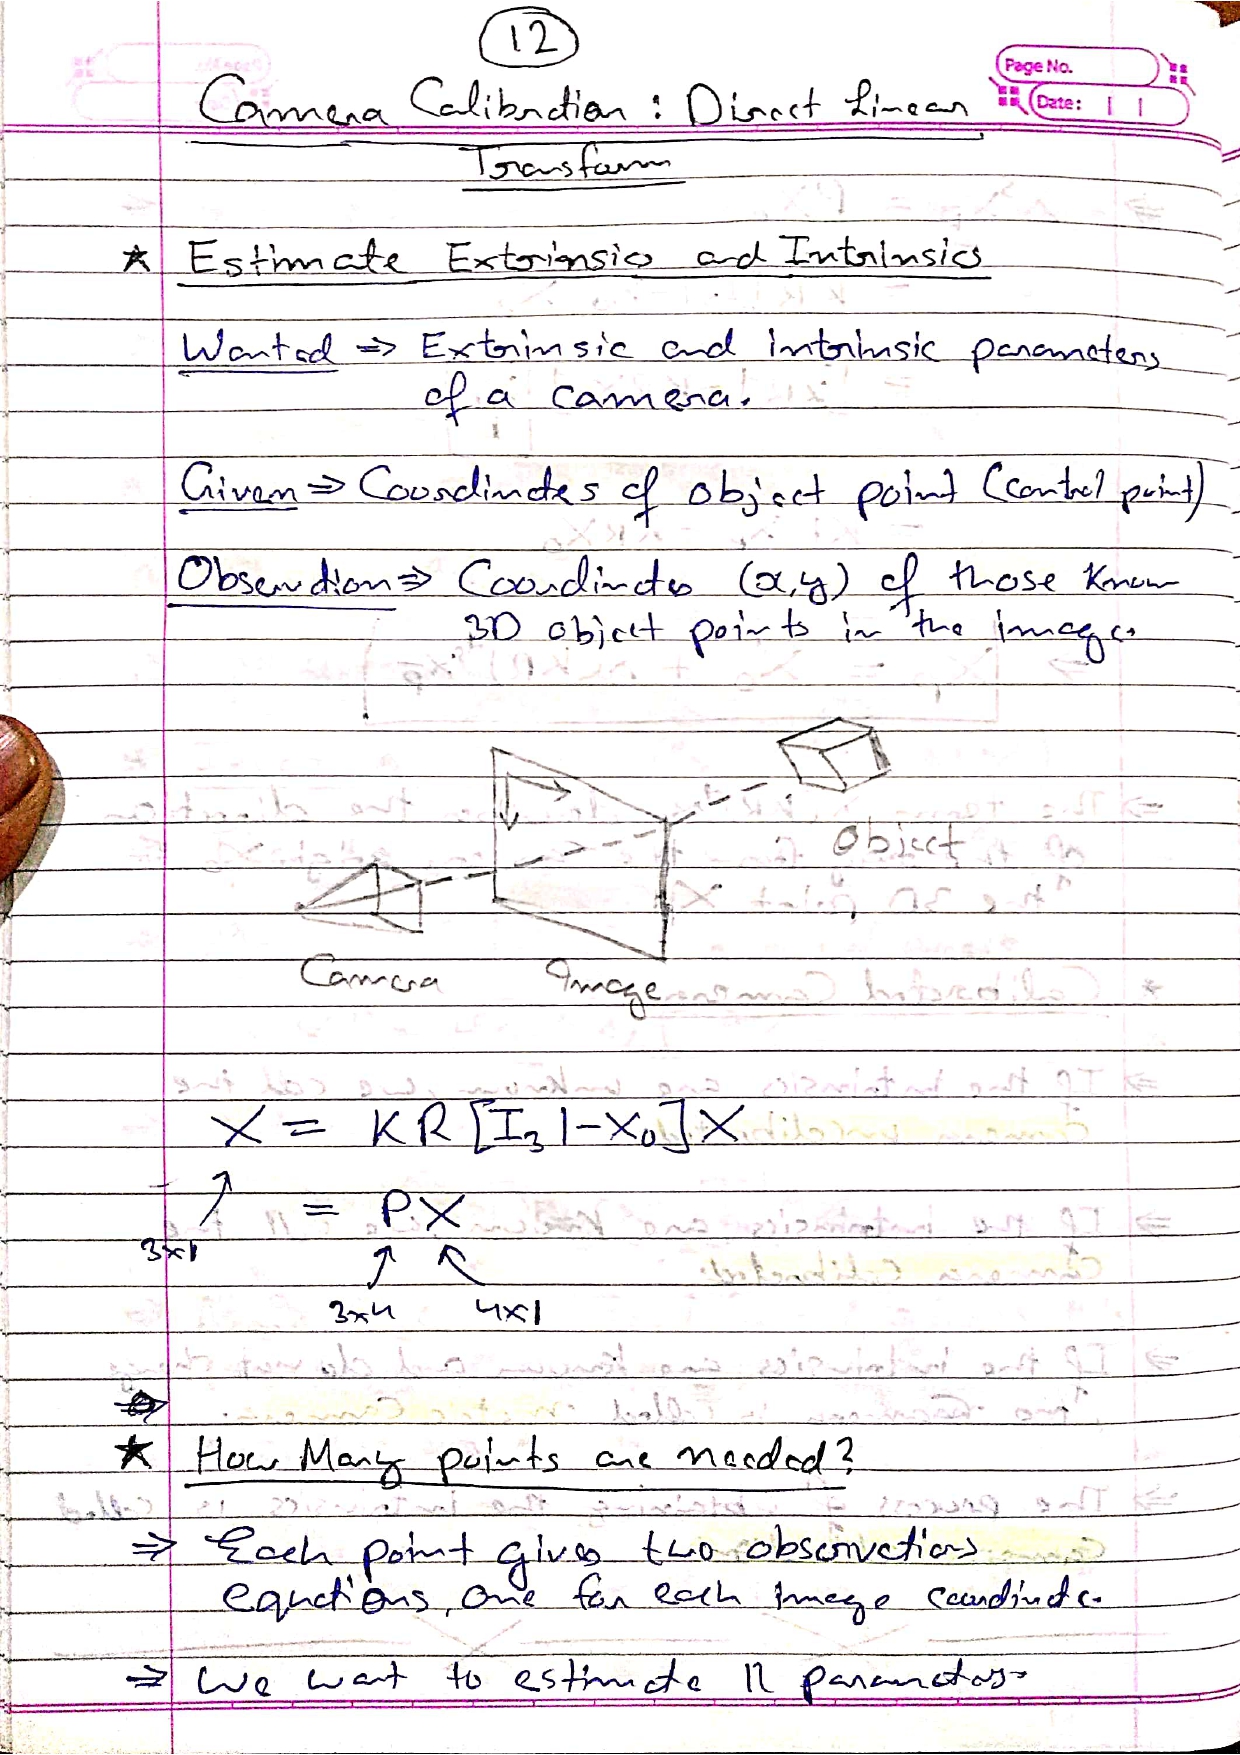 12
Page No.
Date:
Camera Calibration : Direct Linear
Transform
★ Estimate Extrinsics and Intrinsics
Wanted ⇒ Extrinsic and intrinsic parameters
of a camera.
Given ⇒ Coordinates of object point (control point)
Observation ⇒ Coordinates (x,y) of those know
3D object points in the image.
Object
Camera
Image
X = KR[I₃|-X₀]X
= PX
3x1
3x4 4x1
★ How Many points are needed?
⇒ Each point gives two observations
equations, one for each image coordinate.
⇒ We want to estimate 11 parameters.